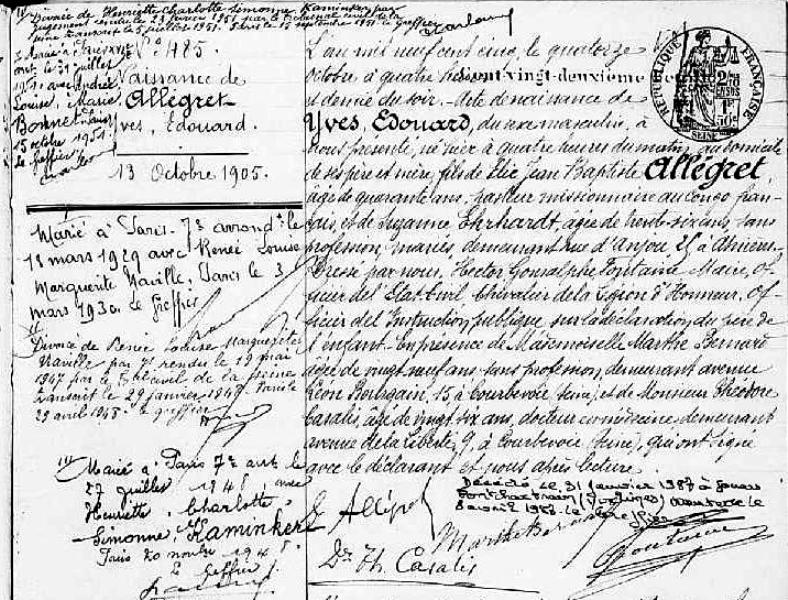 Divorcé de Henriette Charlotte Simonne Kaminker par
jugement rendu le 23 février 1951 par le Tribunal civil de la
Seine transcrit le 5 juillet 1951. Paris le 15 septembre 1951. le greffier
N° 485.
Naissance de
Allégret
Yves, Edouard.
13 Octobre 1905.
3 Marié à
le 31 juillet
1951 avec Andrée
Louise, Marie
Bonnet
15 octobre 1951.
le greffier
Marié à Paris. 7e arrondt le
18 mars 1929 avec Renée Louise
Marguerite Naville, Paris le 3
mars 1930. Le Greffier
Divorcé de Renée Louise Marguerite
Naville par Jt rendu le 19 mai
1947 par le Tb civil de la Seine
transcrit le 29 janvier 1948. Paris le
29 avril 1948. le greffier
Marié à Paris 7e arrt le
27 juillet 1948, avec
Henriette, Charlotte,
Simonne, Kaminker
Paris 20 novbre 1948.
Le Greffier
L'an mil neuf cent cinq, le quatorze
octobre à quatre heures
Cent-vingt-deuxième
et demie du soir. Acte de naissance de
Yves, Edouard, du sexe masculin, à
nous présenté, né hier à quatre heures du matin, au domicile
de ses père et mère, fils de Elie Jean Baptiste Allégret,
âgé de quarante ans, pasteur missionnaire au Congo fran-
çais, et de Suzanne Ehrhardt, âgée de trente-six ans, sans
profession, mariés demeurant rue d'Anjou 25 à Asnières.
Dressé par nous, Hector Gonsalphe Fontaine Maire, Of-
ficier de l'Etat-Civil Chevalier de la Légion d'Honneur, Of-
ficier de l'Instruction publique sur la déclaration du père de
l'enfant. En présence de Mademoiselle Marthe Bernard
âgée de vingt neuf ans, sans profession, demeurant avenue
Léon Bourgain, 15 à Courbevoie (Seine), et de Monsieur Théodore
Casalis, âgé de vingt six ans, docteur en médecine, demeurant
avenue de la Liberté, 9, à Courbevoie (Seine), qui ont signé
avec le déclarant et nous après lecture.
Décédé le 31 janvier 1987 à Jouars
Pontchartrain (Yvelines)
E Allégret
Marthe Bernard
Fontaine
Dr Th. Casalis
RÉPUBLIQUE FRANÇAISE
SEINE